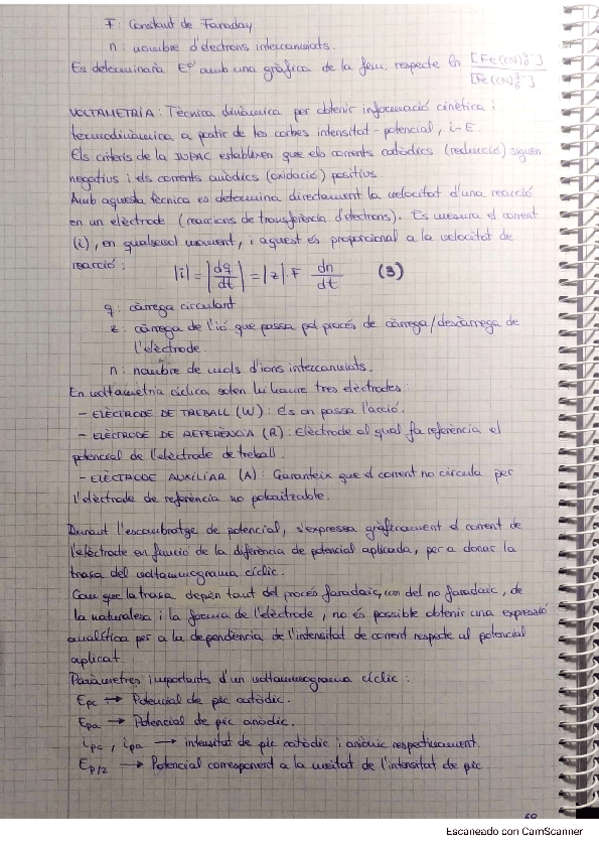 F: Constant de Faraday
n: nombre d'electrons intercanviats.
Es determinarà E°' amb una gràfica de la fem respecte ln [Fe(CN)₆³⁻]
[Fe(CN)₆⁴⁻]
VOLTAMETRIA: Tècnica dinàmica per obtenir informació cinètica i
termodinàmica a partir de les corbes intensitat-potencial, i-E.
Els criteris de la IUPAC estableixen que els corrents catòdics (reducció) siguen
negatius i els corrents anòdics (oxidació) positius.
Amb aquesta tècnica es determina directament la velocitat d'una reacció
en un elèctrode (reaccions de transferència d'electrons). Es mesura el corrent
(i), en qualsevol moment, i aquest és proporcional a la velocitat de
reacció:
|i| = |dq/dt| = |z|·F dn/dt (3)
q: càrrega circulant
z: càrrega de l'ió que passa pel procés de càrrega/descàrrega de
l'elèctrode.
n: nombre de mols d'ions intercanviats.
En voltametria cíclica solen hi haure tres elèctrodes:
- ELÈCTRODE DE TREBALL (W): és on passa l'acció.
- ELÈCTRODE DE REFERÈNCIA (R): Elèctrode al qual fa referència el
potencial de l'elèctrode de treball.
- ELÈCTRODE AUXILIAR (A): Garanteix que el corrent no circula per
l'elèctrode de referència no polaritzable.
Durant l'escombratge de potencial, s'expressa gràficament el corrent de
l'elèctrode en funció de la diferència de potencial aplicada, per a donar la
trasa del voltammograma cíclic.
Com que la trasa depén tant del procés faradaic, com del no faradaic, de
la naturalesa i la forma de l'elèctrode, no és possible obtenir una expressió
analítica per a la dependència de l'intensitat de corrent respecte al potencial
aplicat.
Paràmetres importants d'un voltammograma cíclic:
Epc → Potencial de pic catòdic.
Epa → Potencial de pic anòdic.
ipc, ipa → intensitat de pic catòdic i anòdic respectivament.
Ep/2 → Potencial corresponent a la meitat de l'intensitat de pic
Escaneado con CamScanner